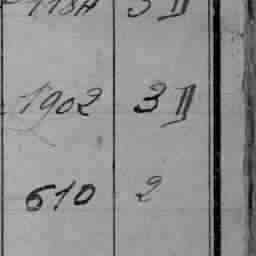 1184 3 II
1902 3 II
610 2